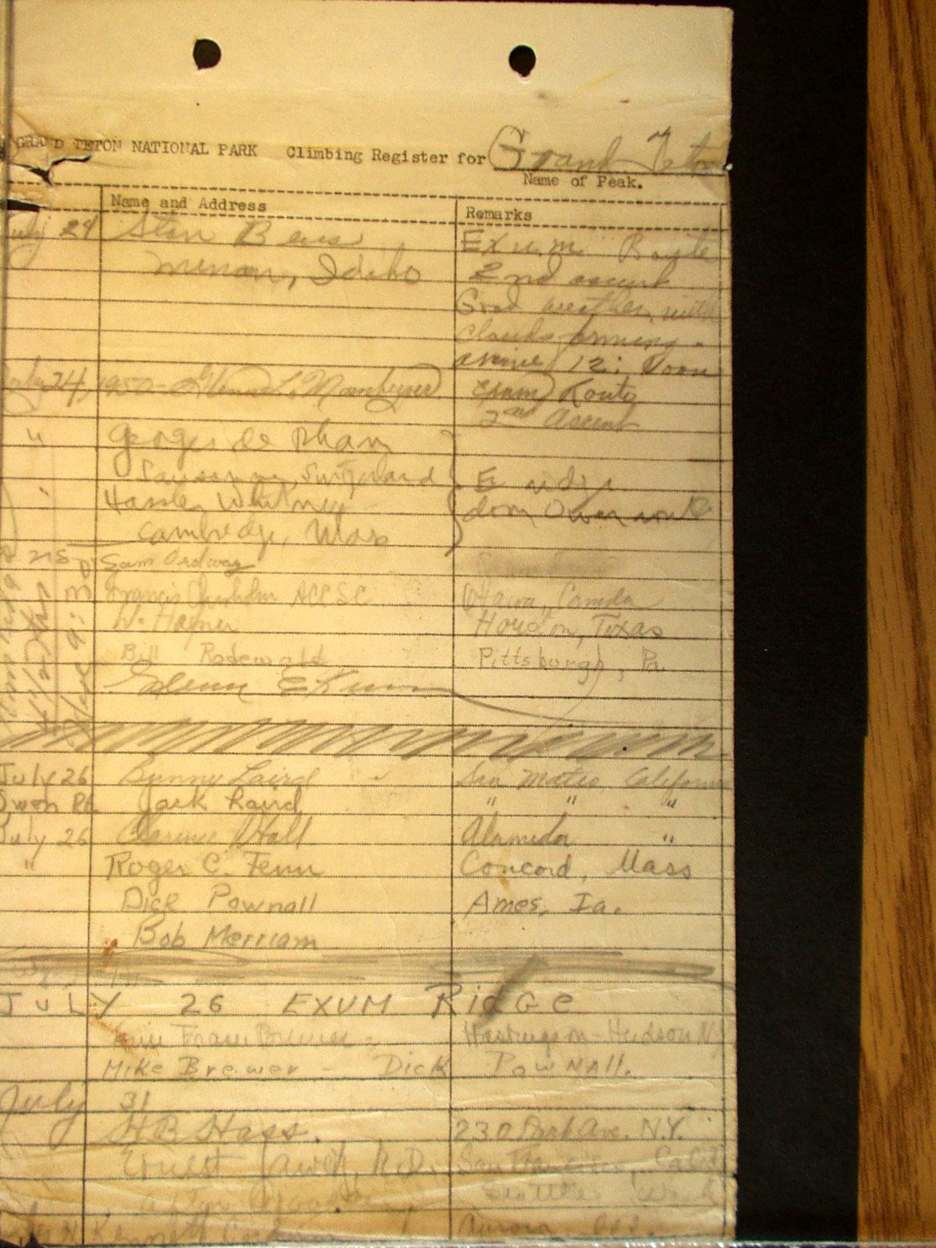 GRAND TETON NATIONAL PARK Climbing Register for Grand Teton
Name of Peak.
Name and Address Remarks
July 24 Stan Exum Route
Menan, Idaho 2nd ascent
Good weather, with
clouds forming
12: Noon
July 24, 1950 Exum Route
2nd Ascent
" Georges de Rham
Switzerland } E ridge
" Hassler Whitney down Owen route
Cambridge, Mass
Sam Ordway
Francis Chisholm ACC SC Ottawa, Canada
W. Hafner Houston, Texas
Bill Rodewald Pittsburgh, Pa
Glenn Exum
July 26 Bunny Laird San Mateo, California
Owen Rt. Jack Laird " " "
July 26 Clarence Hall Alameda "
" Roger C. Fenn Concord, Mass
Dick Pownall Ames, Ia.
Bob Merriam
JULY 26 EXUM RIDGE
Hastings on-Hudson N.Y.
Mike Brewer - Dick Pownall.
July 31
HB Hass. 230 Park Ave. N.Y.
Ernest San Francisco, Calif
Seattle Wash
Kenneth